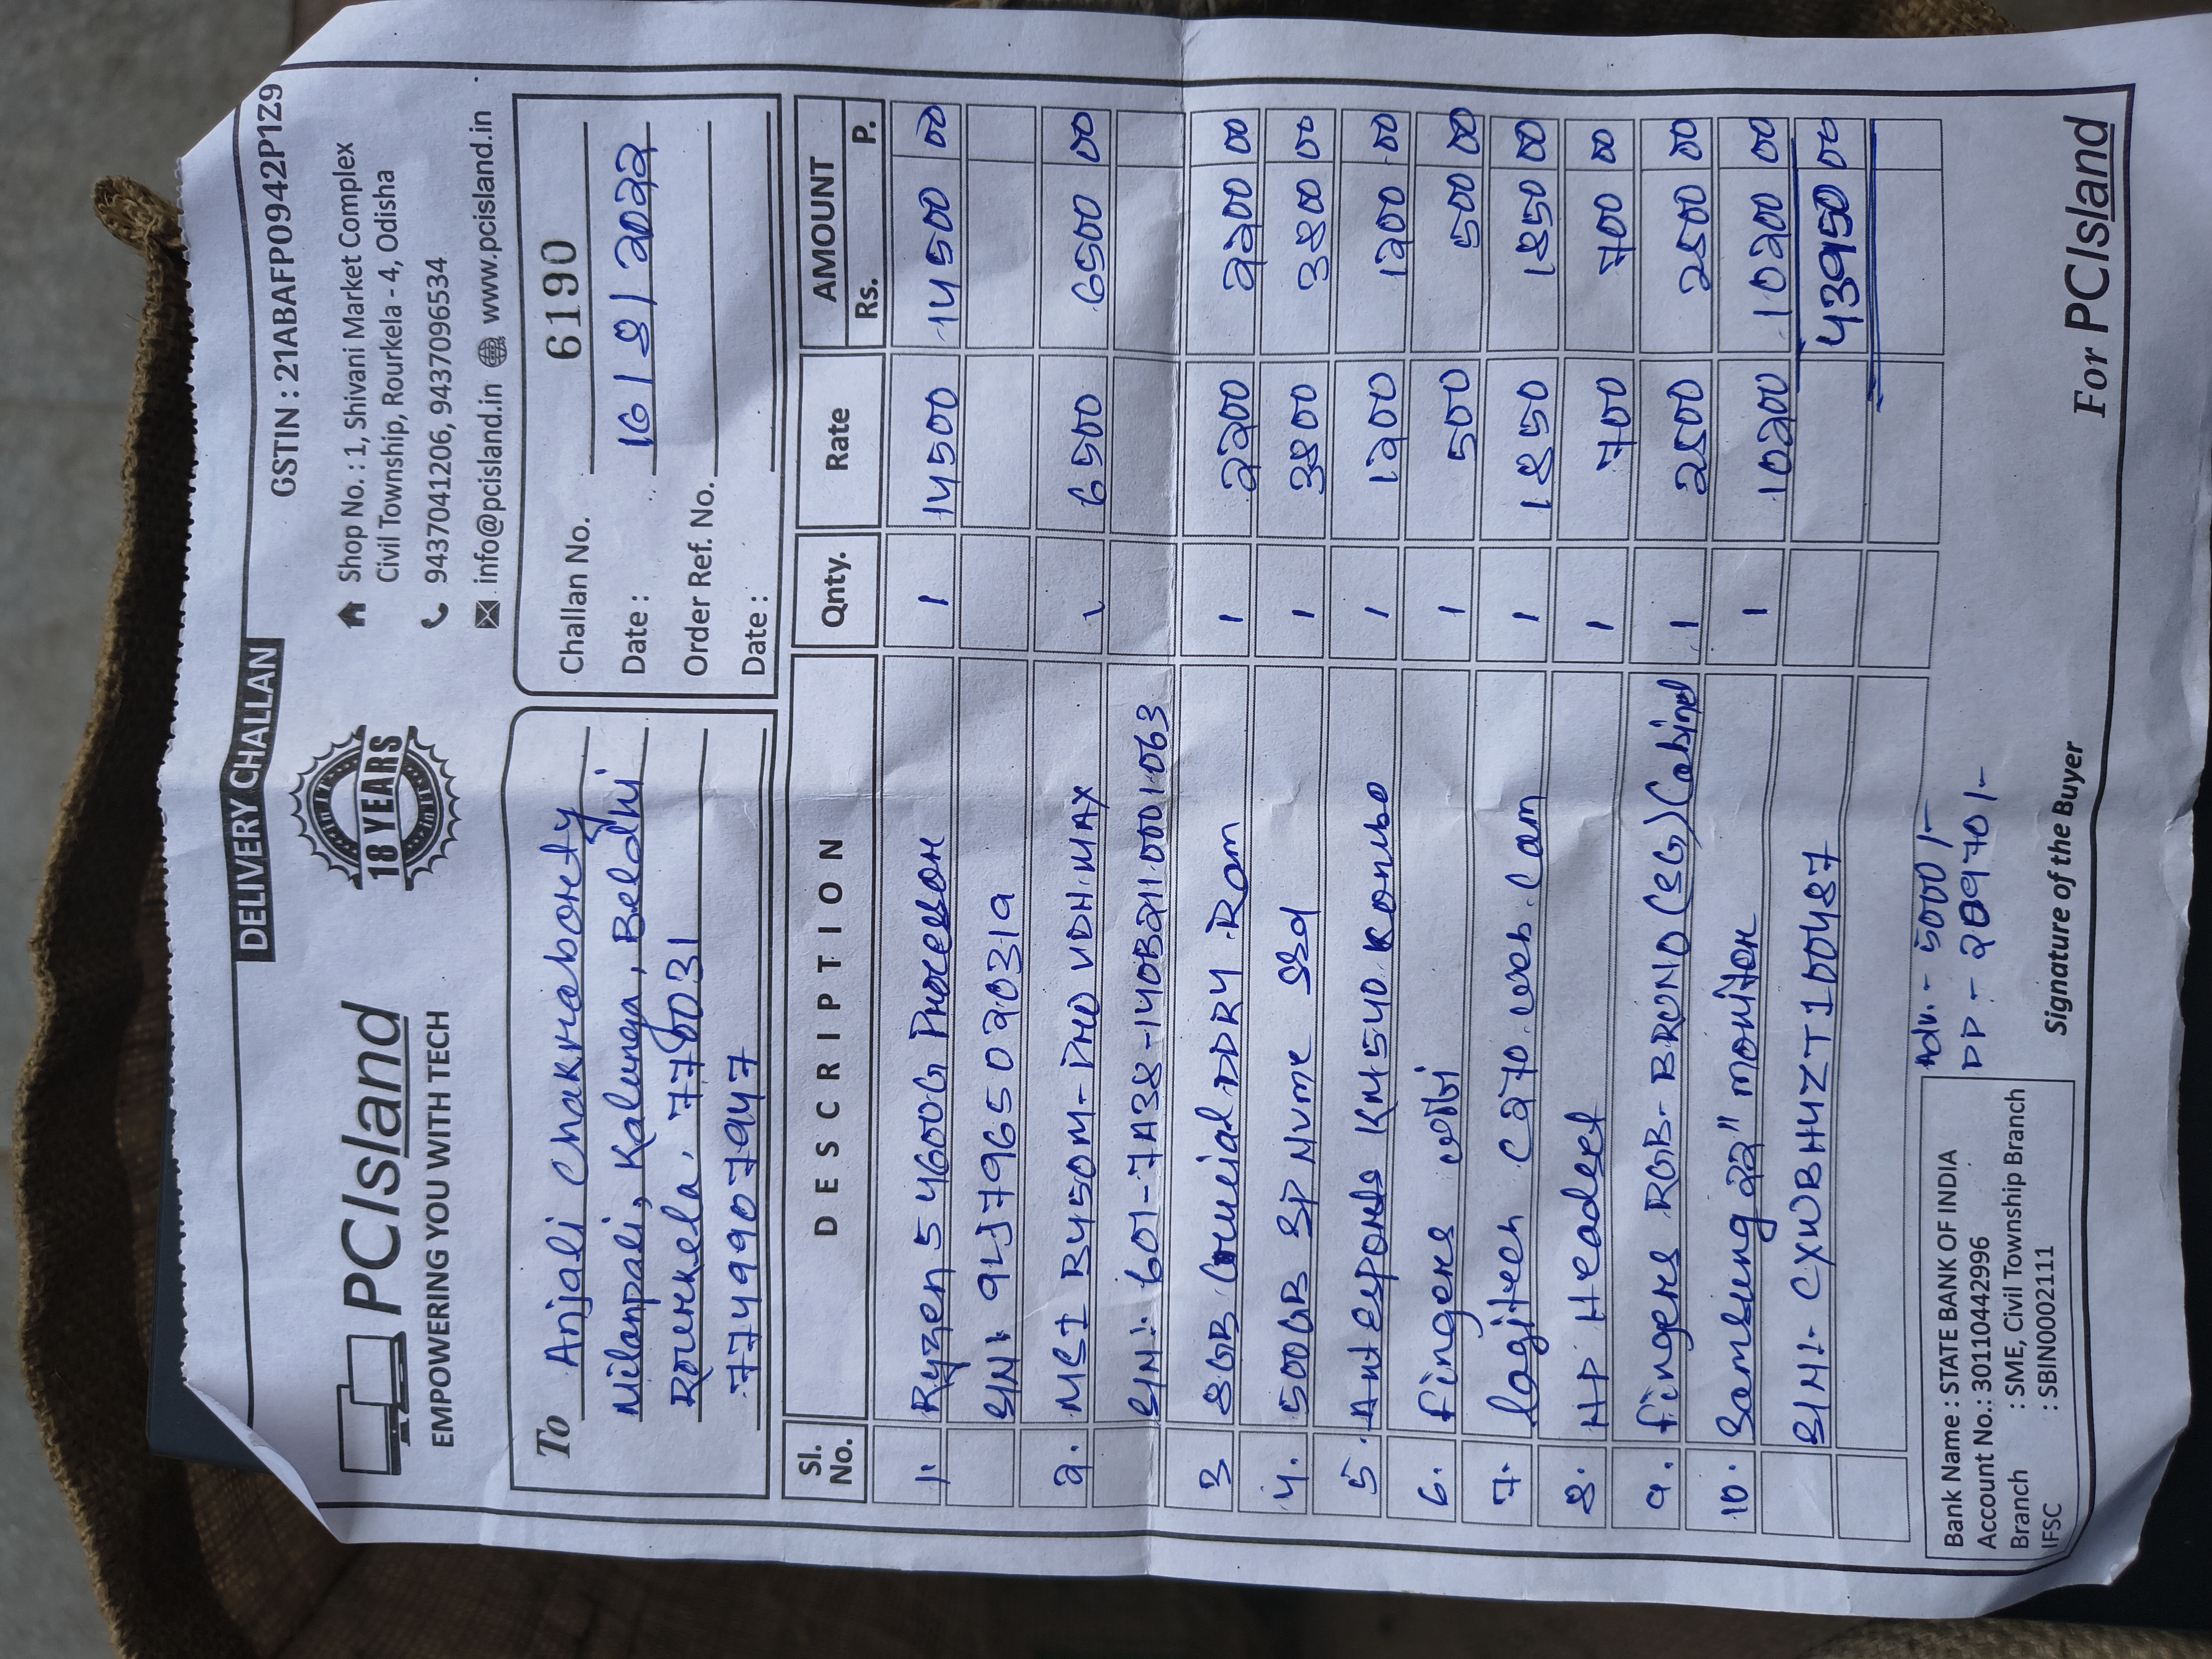 DELIVERY CHALLAN
GSTIN : 21ABAFP0942P1Z9
PCIsland
EMPOWERING YOU WITH TECH
in IT
18 YEARS
in IT
Shop No. : 1, Shivani Market Complex
Civil Township, Rourkela - 4, Odisha
9437041206, 9437096534
info@pcisland.in www.pcisland.in
To Anjali Chakraborty
Milanpali, Kalunga, Beldhi
Rourkela. 770031
7749907947
Challan No. 6190
Date : 16/8/2022
Order Ref. No.
Date :
Sl. No. DESCRIPTION Qnty. Rate AMOUNT Rs. P.
1. Ryzen 5 4600G Processor 1 14500 14500 00
S/N:- 9LJ7965020319
2. MSI B450M-PRO VDH MAX 1 6500 6500 00
S/N:- 601-7A38-140B2110001063
3 8GB Crucial DDR4 Ram 1 2200 2200 00
4. 500GB SP Nvme SSd 1 3800 3800 00
5. Ant esports KM540 Kombo 1 1200 1200 00
6. fingers 1 500 500 00
7. logitech C270 web. Cam 1 1850 1850 00
8. HP Headset 1 700 700 00
9. fingers RGB- BRUNO (SG) Cabinet 1 2500 2500 00
10. Samsung 22" monitor 1 10200 10200 00
S/N:- CXWBH4ZT100487 43950 00
Adv. - 5000/-
DP - 20970/-
Bank Name : STATE BANK OF INDIA
Account No.: 30110442996
Branch : SME, Civil Township Branch
IFSC : SBIN0002111
Signature of the Buyer
For PCIsland